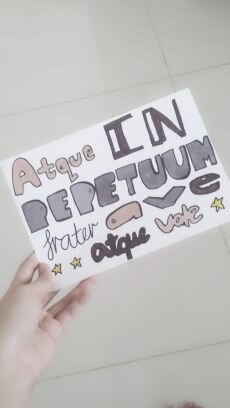 Atque IN
PEPETUUM
frater ave
atque vale